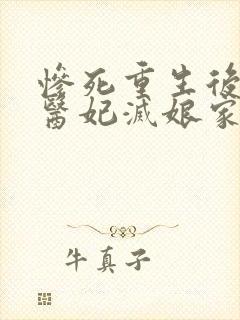 慘死重生後
醫妃滅娘家
牛真子